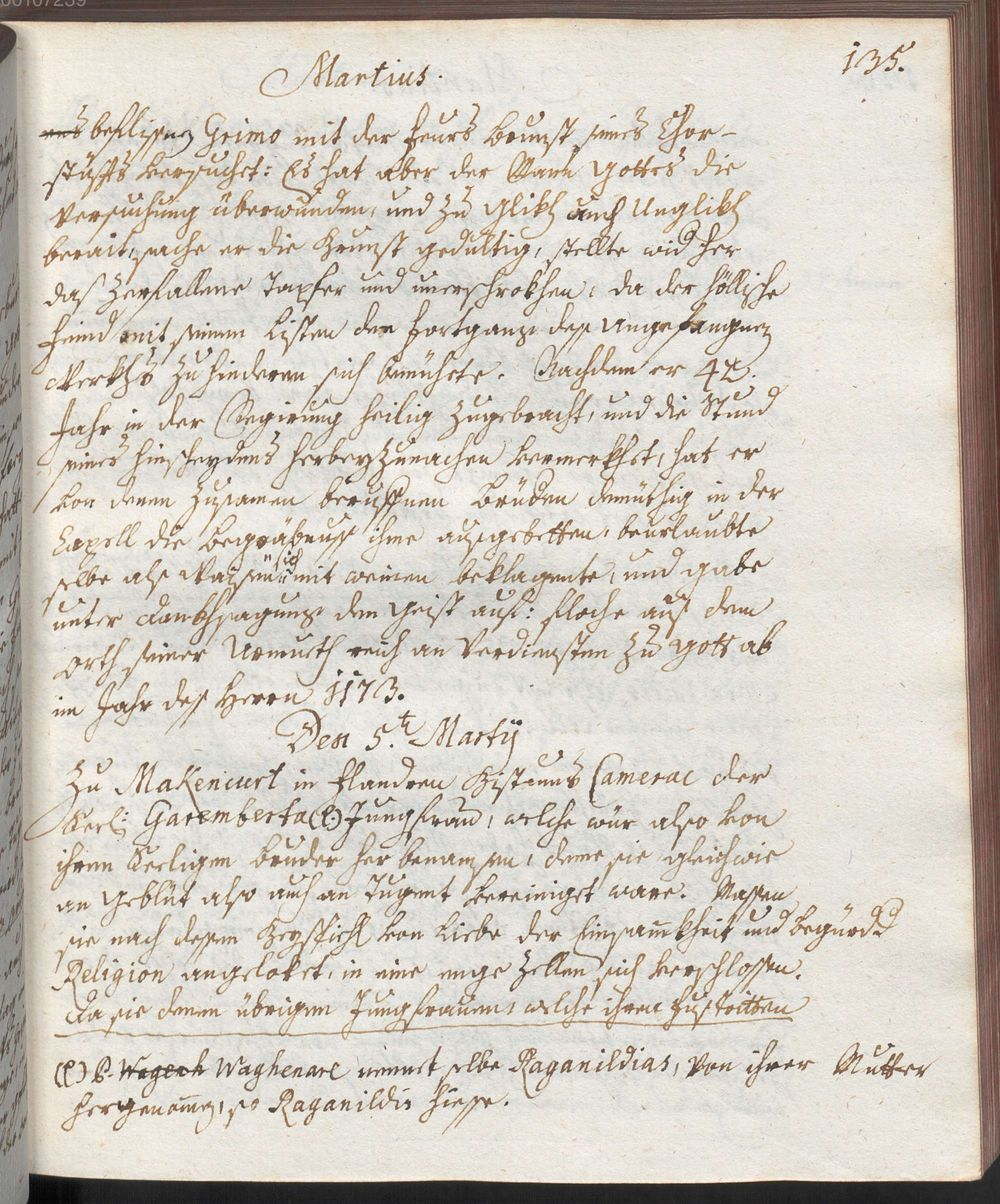 00107239
Martius.
135.
beflissnen Geimo mit der Feurs brunst seines Chor-
stüffts versuchet: Es hat aber der Man Gottes die
Versuchung überwunden, und zu Glikh auch Unglikh
berait, sache er die Brunst gedultig, stellte widher
das Zerfallene tapfer und unerschrokhen, da der höllische
Feind mit seinen Listen den Fortgang dess angefangnen
Werkhs zu hinderen sich bemühete. Nachdem er 42.
Jahr in der Regirung heilig zugebracht, und die Stund
seines hinscheydens herbeyzunachen vermerkhet, hat er
von denen zusamen beruffnen Brüdern demüthig in der
Capell die begräbnuss ihme aussgebetten, beurlaubte
selbe als Waisen sich mit weinen beklagente, und gabe
unter dankhsagung den Geist auf: floche aus dem
orth seiner Armuth reich an Verdiensten zu Gott ab
im Jahr dess Herrn 1173.
Den 5.t Martij
Zu Makencurt in Flandren Bistums Camerac der
Seel: Garemberta (e) Jungfrau, welche wür also von
ihrem Seeligen bruder her benamsen, deme sie gleichwie
an Geblüt also auch an Tugent vereiniget ware. Massen
sie nach dessen Beyspichl von Liebe der Einsamkheit und begürd d.
Religion angeloket, in eine enge Zellen sich verschlossen.
Da sie denen übrigen Jungfrauen, welche ihren zustritten
(e) P. Wageh Waghenare nennet selbe Raganildias, von ihrer Mutter
hergenomen, so Raganildis hiesse.